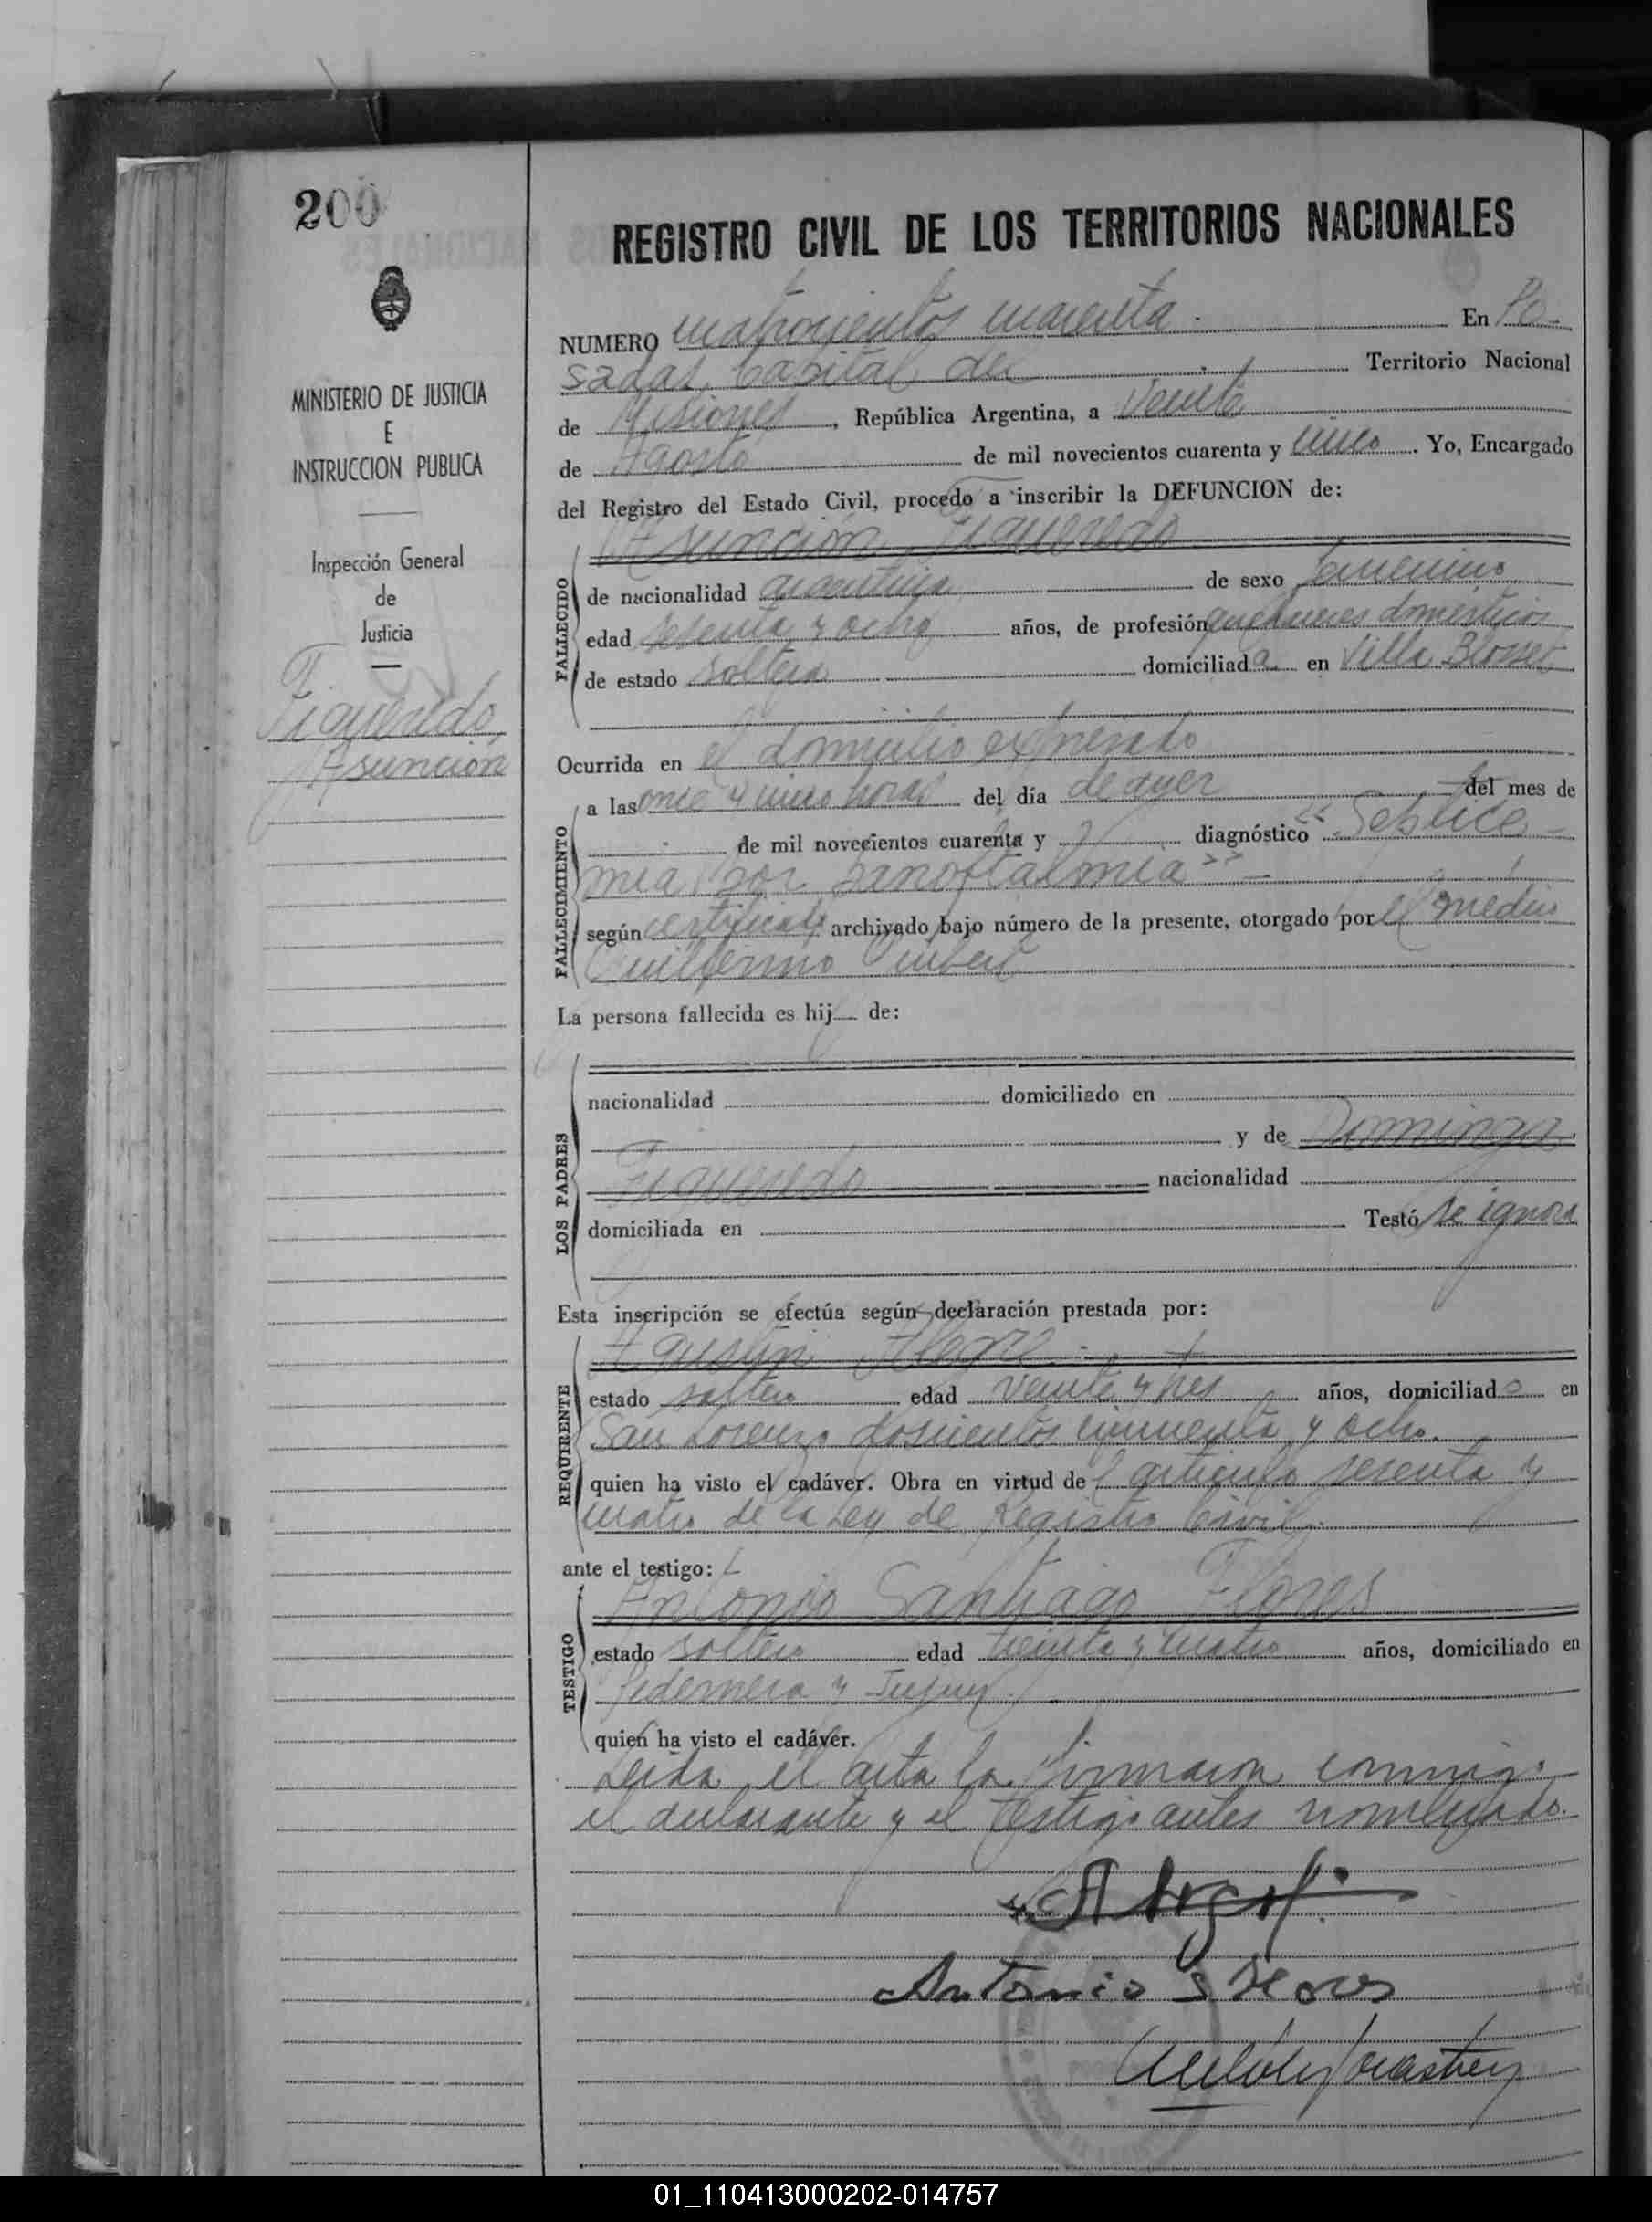 200
MINISTERIO DE JUSTICIA
E
INSTRUCCION PUBLICA
Inspección General
de
Justicia
Figueredo,
Asunción
REGISTRO CIVIL DE LOS TERRITORIOS NACIONALES
NUMERO cuatrocientos cuarenta. En Po-
sadas, Capital del Territorio Nacional
de Misiones, República Argentina, a veinte
de Agosto de mil novecientos cuarenta y cinco. Yo, Encargado
del Registro del Estado Civil, procedo a inscribir la DEFUNCION de:
Asunción Figueredo
FALLECIDO
de nacionalidad argentina de sexo femenino
edad sesenta y ocho años, de profesión quehaceres domésticos
de estado soltera domiciliada en Villa Blosset
Ocurrida en el domicilio expresado
FALLECIMIENTO
a las once y cinco horas del día de ayer del mes de
de mil novecientos cuarenta y diagnóstico "Septice-
mia por panoftalmia"-
según certificado archivado bajo número de la presente, otorgado por el médico
Guillermo
La persona fallecida es hij de:
LOS PADRES
nacionalidad domiciliado en
y de Dominga
Figueredo nacionalidad
domiciliada en Testó se ignora
Esta inscripción se efectúa según declaración prestada por:
REQUIRENTE
Agustín Alegre.
estado soltero edad veinte y tres años, domiciliado en
San Lorenzo doscientos cincuenta y ocho.
quien ha visto el cadáver. Obra en virtud del artículo sesenta y
cuatro de la Ley de Registro Civil.
ante el testigo:
TESTIGO
Antonio Santiago Flores
estado soltero edad treinta y cuatro años, domiciliado en
Pedernera y Jujuy.
quien ha visto el cadáver.
Leída el acta la firmaron conmigo
el declarante y el testigo antes nombrado.
Antonio S. Flores
01_110413000202-014757